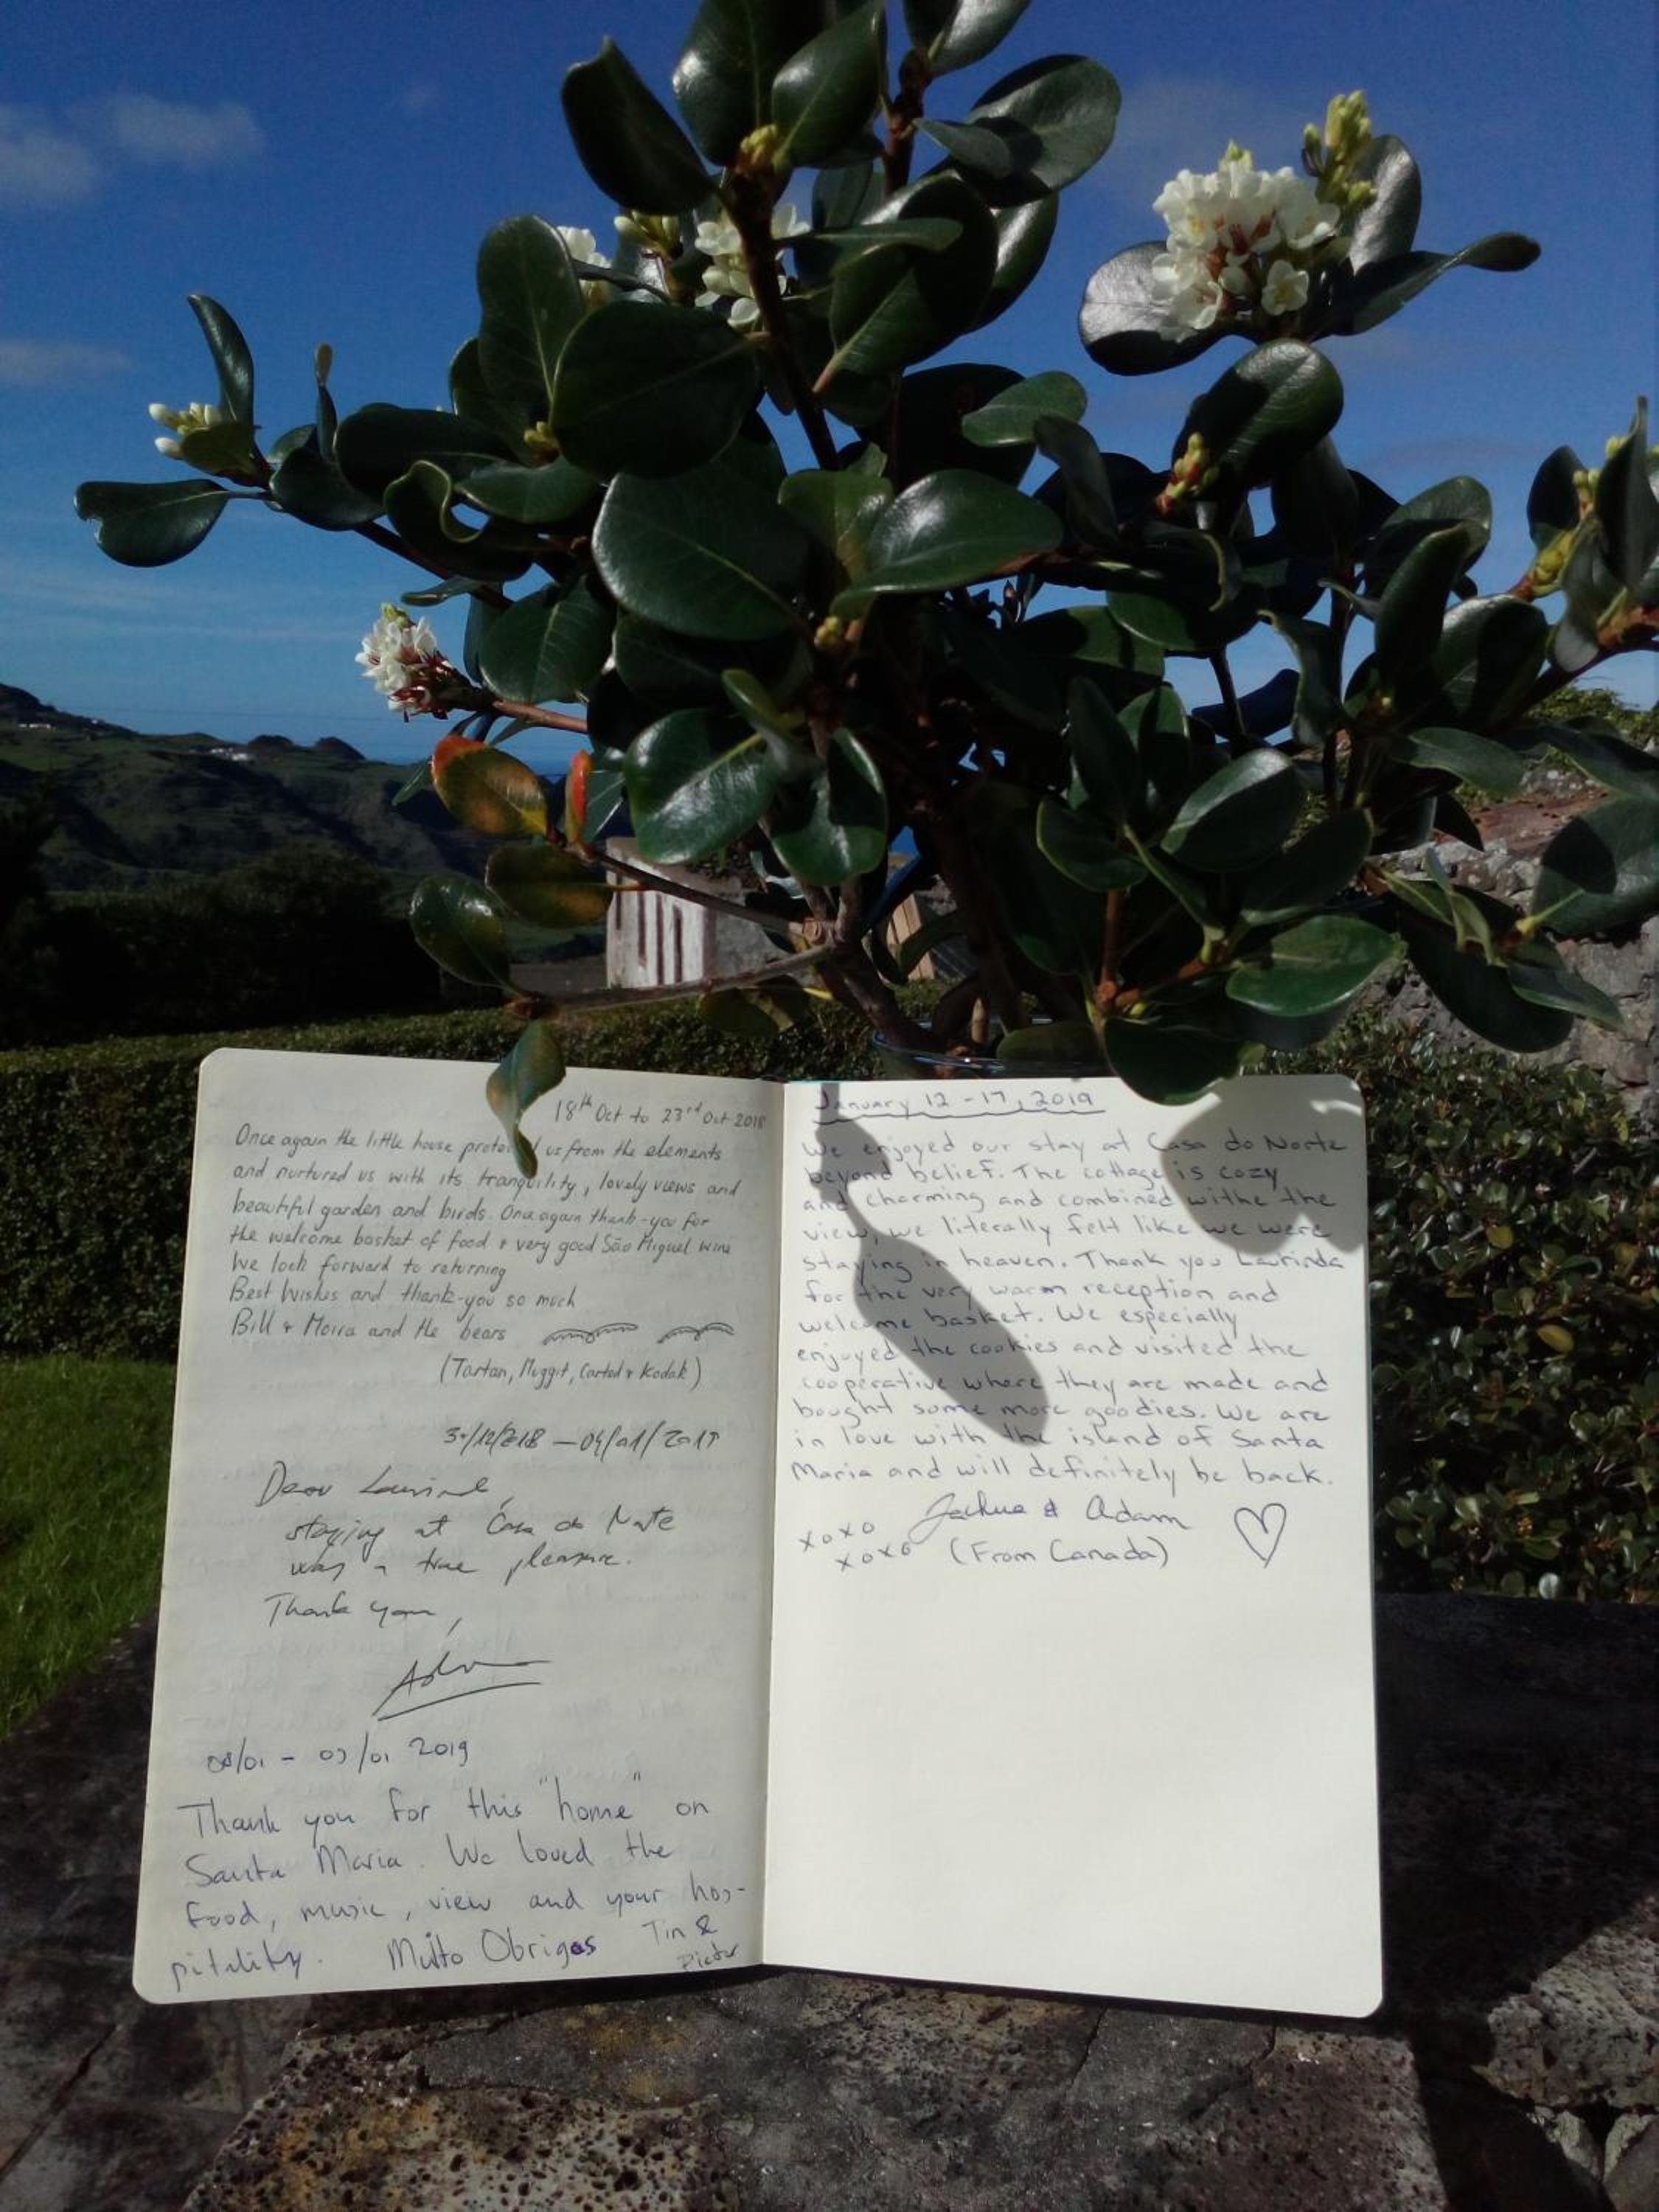 18th Oct to 23rd Oct 2018
Once again the little house us from the elements
and nurtured us with its tranquility, lovely views and
beautiful garden and birds. Once again thank-you for
the welcome basket of food + very good São Miguel wine
We look forward to returning
Best Wishes and thank-you so much
Bill & Moira and the bears
(Tartan, & Kodak)
/12/2018 - 04/01/2019
Dear
staying at Casa do Norte
was a true pleasure.
Thank you,
- 09/01 2019
Thank you for this "home" on
Santa Maria. We loved the
food, music, view and your hos-
pitality. Muito Obrigas Tin &
January 12-17, 2019
We enjoyed our stay at Casa do Norte
beyond belief. The cottage is cozy
and charming and combined withe the
view, we literally felt like we were
staying in heaven. Thank you Laurinda
for the very warm reception and
welcome basket. We especially
enjoyed the cookies and visited the
cooperative where they are made and
bought some more goodies. We are
in love with the island of Santa
Maria and will definitely be back.
xoxo & Adam
xoxo (From Canada)